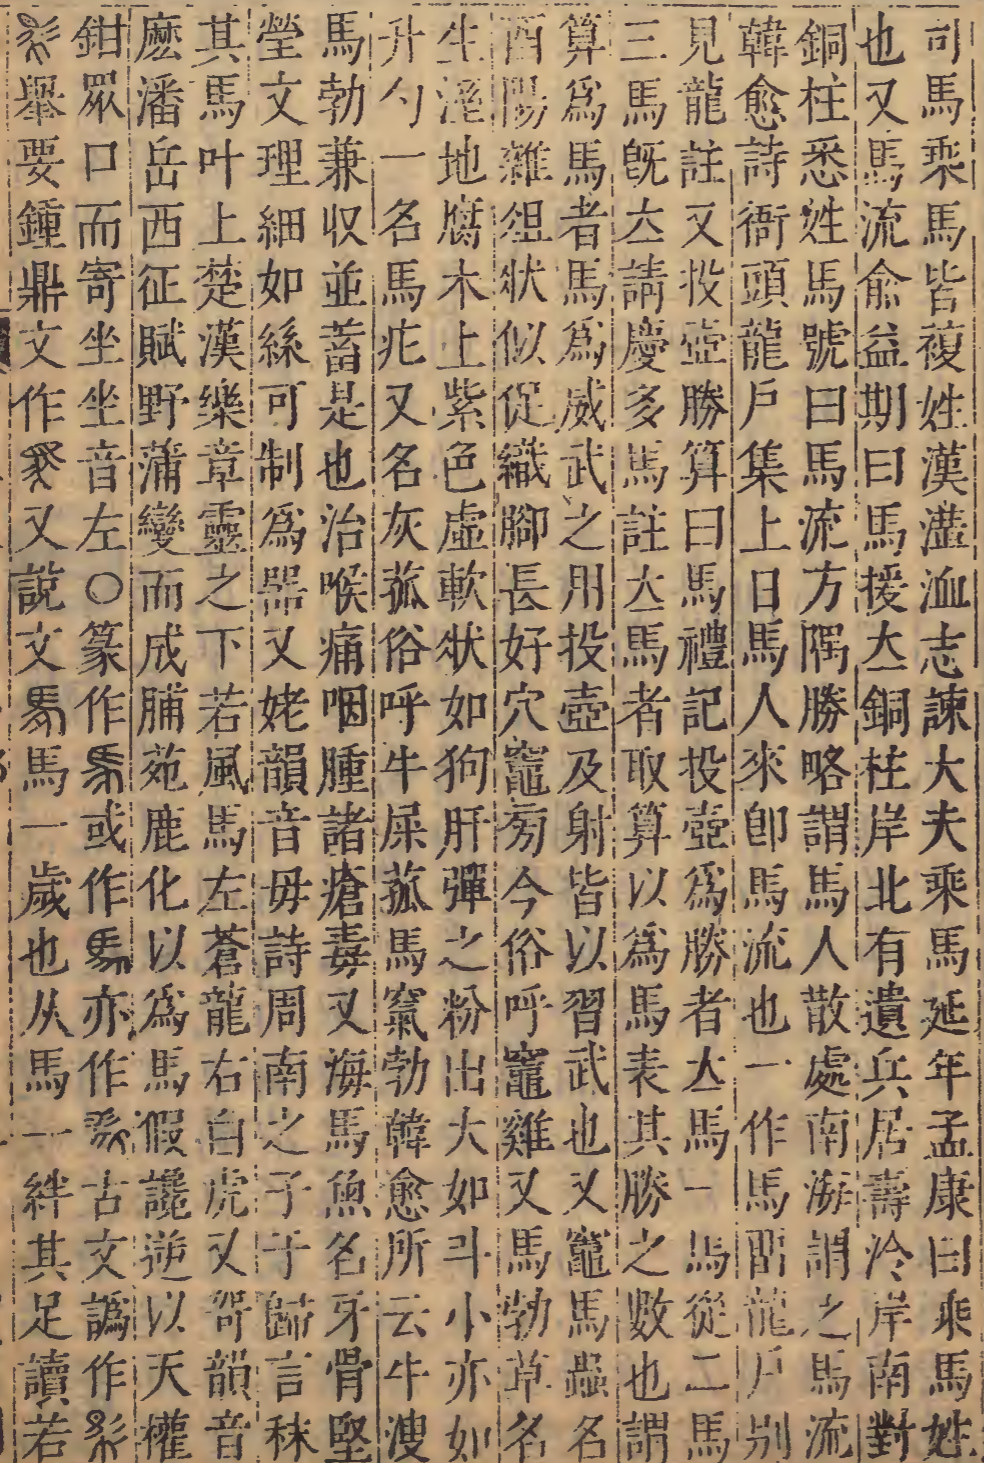 司馬乘馬皆複姓漢溝洫志諫大夫乘馬延年孟康曰乘馬姓
也又馬流俞益期曰馬援立銅柱岸北有遺兵居壽泠岸南對
銅柱悉姓馬號曰馬流方隅勝略謂馬人散處南海謂之馬流
韓愈詩衙頭龍戶集上日馬人來卽馬流也一作馬留龍戶别
見龍註又投壺勝算曰馬禮記投壺爲勝者立馬一馬從二馬
三馬旣立請慶多馬註立馬者取算以爲馬表其勝之數也謂
算爲馬者馬爲威武之用投壺及射皆以習武也又竈馬蟲名
酉陽雜俎狀似促織腳長好穴竈旁今俗呼竈雞又馬勃草名
生溼地腐木上紫色虛軟狀如狗肝彈之粉出大如斗小亦如
升勺一名馬疕又名灰菰俗呼牛屎菰馬窠勃韓愈所云牛溲
馬勃兼収並蓄是也治喉痛咽腫諸瘡毒又海馬魚名牙骨堅
瑩文理細如絲可制爲噐又姥韻音毋詩周南之子于歸言秣
其馬叶上楚漢樂章靈之下若風馬左蒼龍右白虎又哿韻音
麽潘岳西征賦野蒲變而成脯苑鹿化以爲馬假讒逆以天權
鉗眾口而寄坐坐音左○篆作或作亦作古文譌作
舉要鐘鼎文作又說文馬一歲也从馬一絆其足讀若